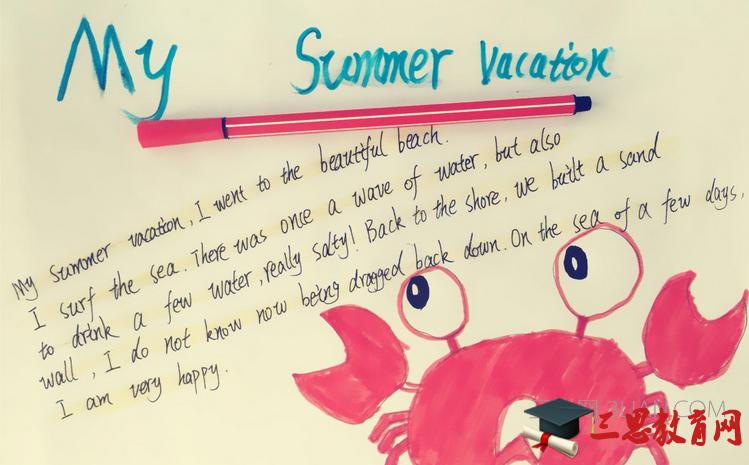 My Summer Vacation
My summer vacation, I went to the beautiful beach.
I surf the sea. There was once a wave of water, but also
to drink a few water, really salty! Back to the shore, we built a sand
wall, I do not know now being dragged back down. On the sea of a few days,
I am very happy.
三思教育网